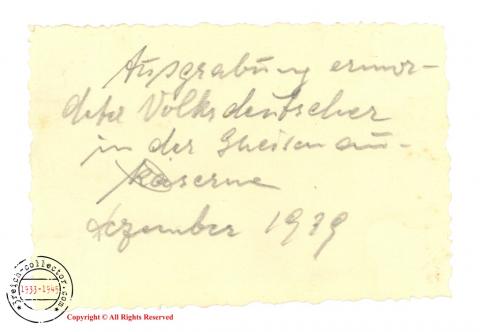 Ausgrabung ermor-
deter Volksdeutscher
in der Gneisenau-
Kaserne
Dezember 1939
3reich-collector.com
1933-1945
Copyright © All Rights Reserved